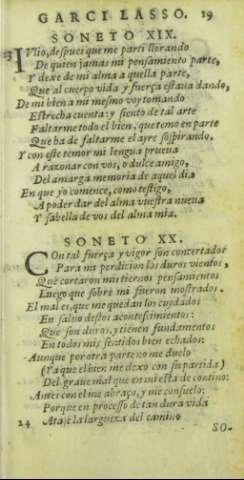 GARCI LASSO. 19
SONETO XIX.
IVlio, despues que me parti llorando
De quien jamas mi pensamiento parte,
Y dexe de mi alma aquella parte,
Que al cuerpo vida y fuerça estaua dando,
De mi bien a mi mesmo voy tomando
Estrecha cuenta: y siento de tal arte
Faltarme todo el bien, que temo en parte
Que ha de faltarme el ayre sospirando.
Y con este temor mi lengua prueua
A razonar con vos, o dulce amigo,
Del amarga memoria de aquel dia
En que yo comence, como testigo,
A poder dar del alma vuestra nueua
Y sabella de vos del alma mia.
SONETO XX.
COn tal fuerça y vigor son concertados
Para mi perdicion los duros vientos,
Que cortaron mis tiernos pensamientos
Luego que sobre mi fueron mostrados.
El mal es, que me quedan los cuydados
En saluo destos acontescimientos:
Que son duros, y tienen fundamentos
En todos mis sentidos bien echados:
Aunque por otra parte no me duelo
(Ya que el bien me dexo con su partida)
Del graue mal que en mi esta de contino:
Antes con el me abraço, y me consuelo:
Porque en processo de tan dura vida
24 Ataje la largueza del camino
SO-